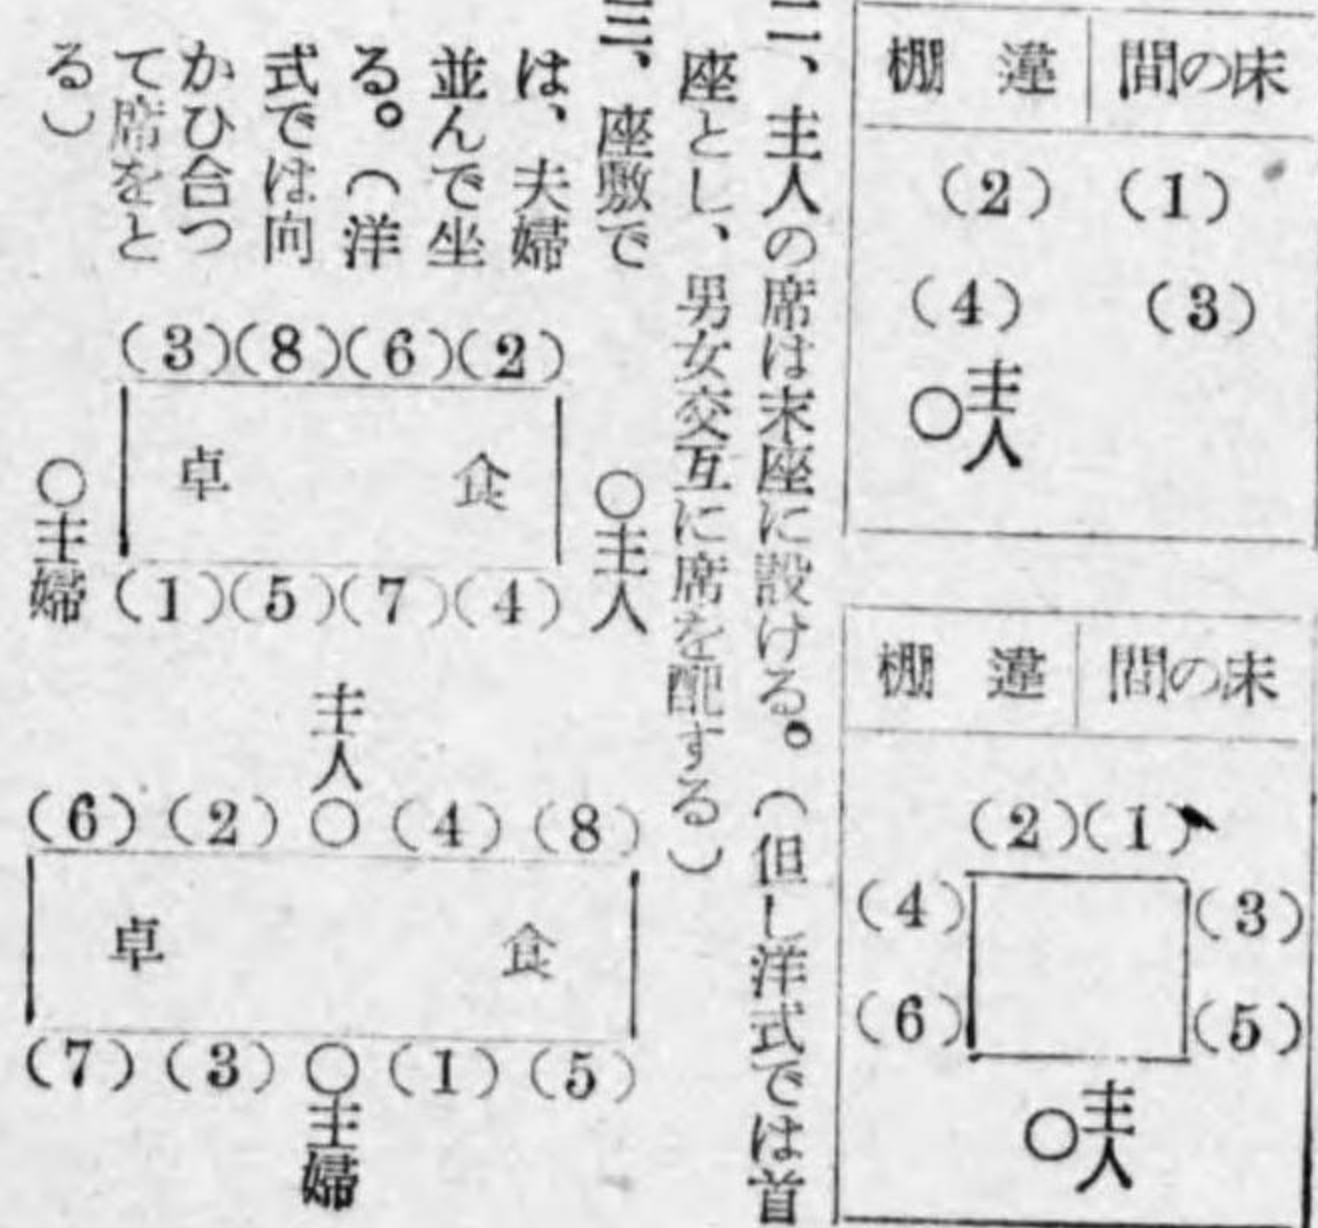 床の間
違棚
(1)
(2)
(3)
(4)
主人
○
床の間
違棚
(2)(1)
(4)
(3)
(6)
(5)
主人
○
二、主人の席は末座に設ける。(但し洋式では首
座とし、男女交互に席を配する)
三、座敷で
は、夫婦
並んで坐
る。(洋
式では向
かひ合つ
て席をと
る)
(3)(8)(6)(2)
食卓
○主人
○主婦
(1)(5)(7)(4)
主人
(6)(2)○(4)(8)
食卓
(7)(3)○(1)(5)
主婦